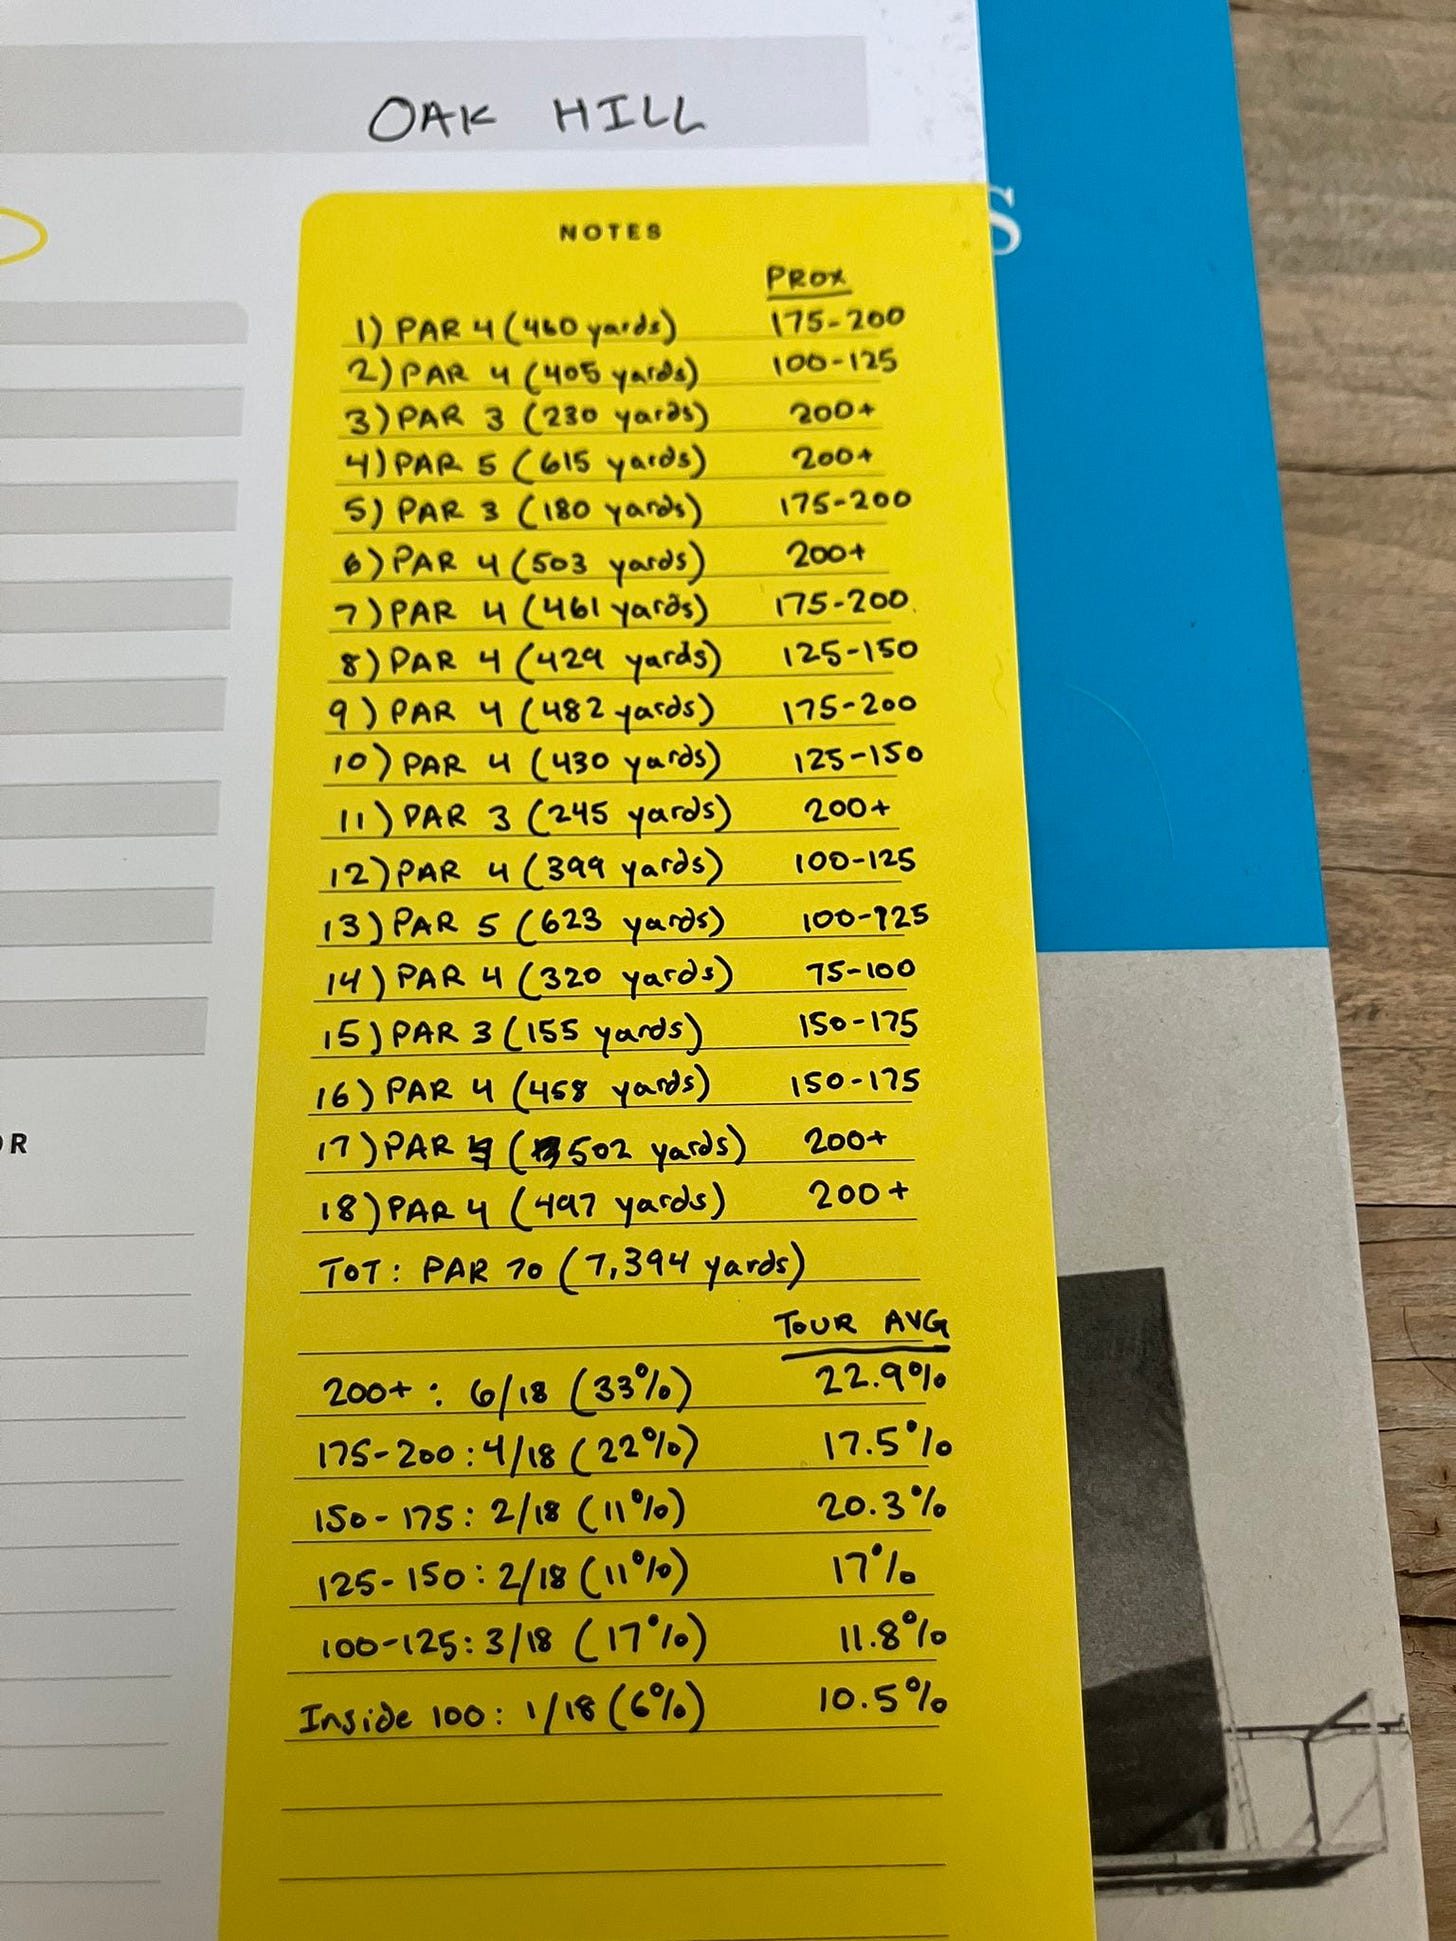 OAK HILL
S
NOTES
PROX
1) PAR 4 (460 yards) 175-200
2) PAR 4 (405 yards) 100-125
3) PAR 3 (230 yards) 200+
4) PAR 5 (615 yards) 200+
5) PAR 3 (180 yards) 175-200
6) PAR 4 (503 yards) 200+
7) PAR 4 (461 yards) 175-200
8) PAR 4 (429 yards) 125-150
9) PAR 4 (482 yards) 175-200
10) PAR 4 (430 yards) 125-150
11) PAR 3 (245 yards) 200+
12) PAR 4 (399 yards) 100-125
13) PAR 5 (623 yards) 100-125
14) PAR 4 (320 yards) 75-100
15) PAR 3 (155 yards) 150-175
16) PAR 4 (458 yards) 150-175
OR
17) PAR 4 (502 yards) 200+
18) PAR 4 (497 yards) 200+
TOT: PAR 70 (7,394 yards)
TOUR AVG
200+: 6/18 (33%) 22.9%
175-200: 4/18 (22%) 17.5%
150-175: 2/18 (11%) 20.3%
125-150: 2/18 (11%) 17%
100-125: 3/18 (17%) 11.8%
Inside 100: 1/18 (6%) 10.5%